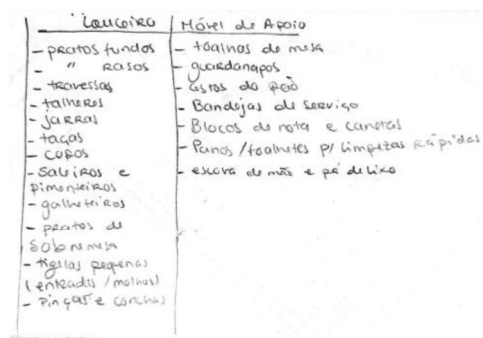 Louceiro
- pratos fundos
- " rasos
- travessas
- talheres
- jarras
- taças
- copos
- saleiros e
pimenteiros
- galheteiros
- pratos de
sobremesa
- tigelas pequenas
(entradas / molhos)
- pinças e conchas
Móvel de Apoio
- toalhas de mesa
- guardanapos
- cestos do pão
- Bandejas de serviço
- Blocos de nota e canetas
- Panos / toalhetes p/ limpezas rápidas
- escova de mão e pá de lixo